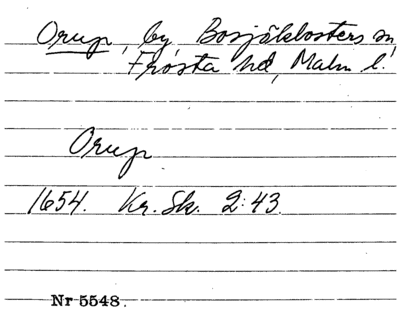 Orup, by, Bosjöklosters sn,
Frosta hd, Malm l.
Orup
1654. Kr. Sk. 2:43.
Nr 5548.